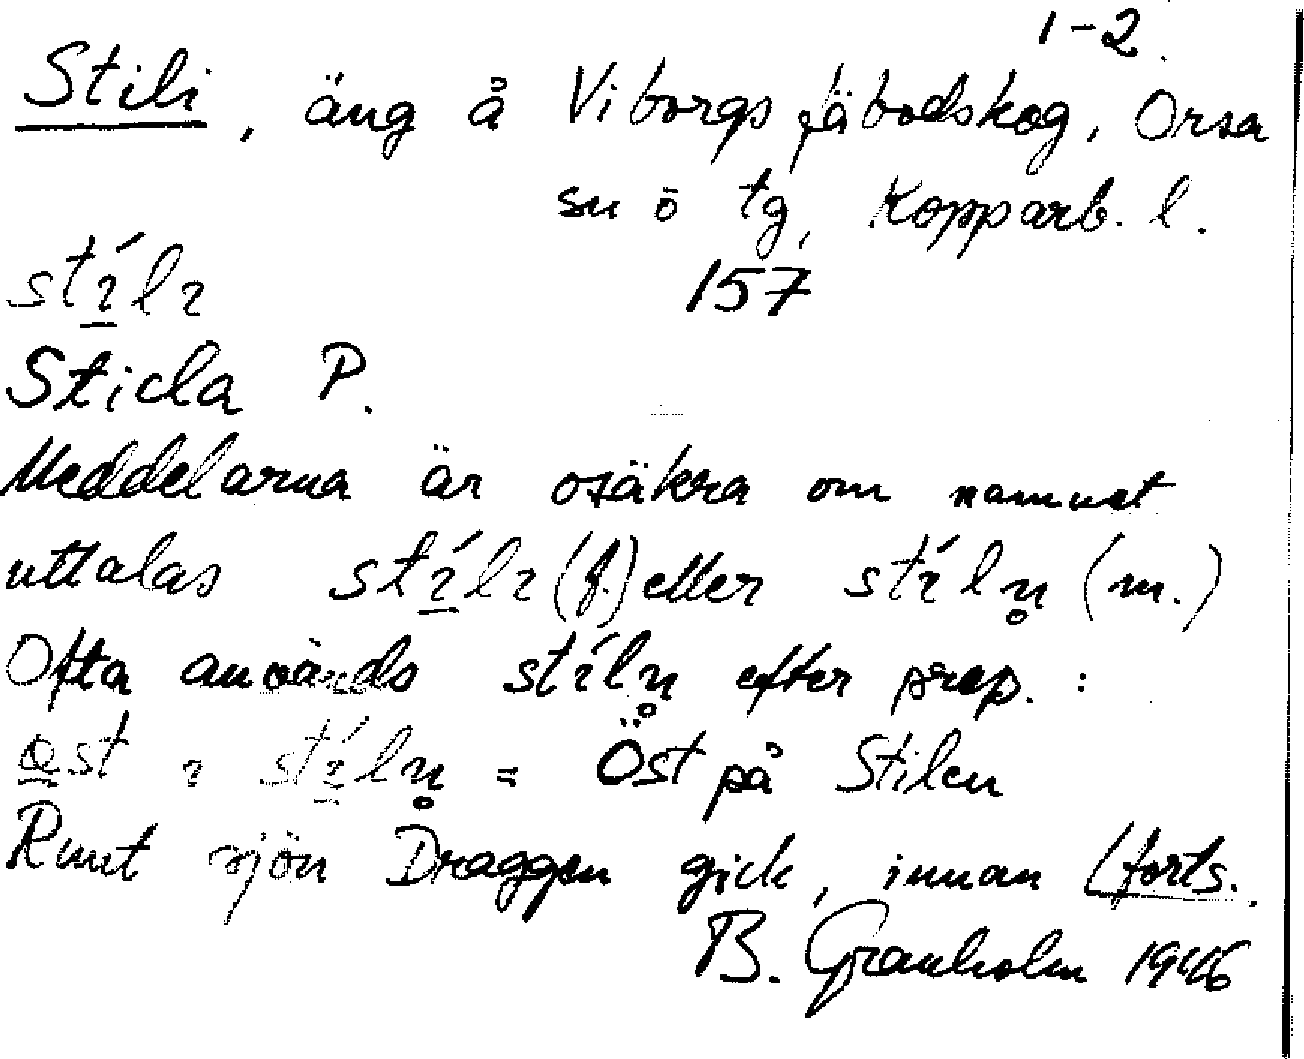 1-2.
Stili, äng å Viborgs fäbodskog, Orsa
sn ö tg, Kopparb. l.
stílı 157
Sticla P.
Meddelarna är osäkra om namnet
uttalas stílı (f.) eller stílṇ (m.)
Ofta används stílṇ efter prep. :
øst ı stílṇ = Öst på Stilen
Runt sjön Draggen gick, innan (forts.
B. Granholm 1946